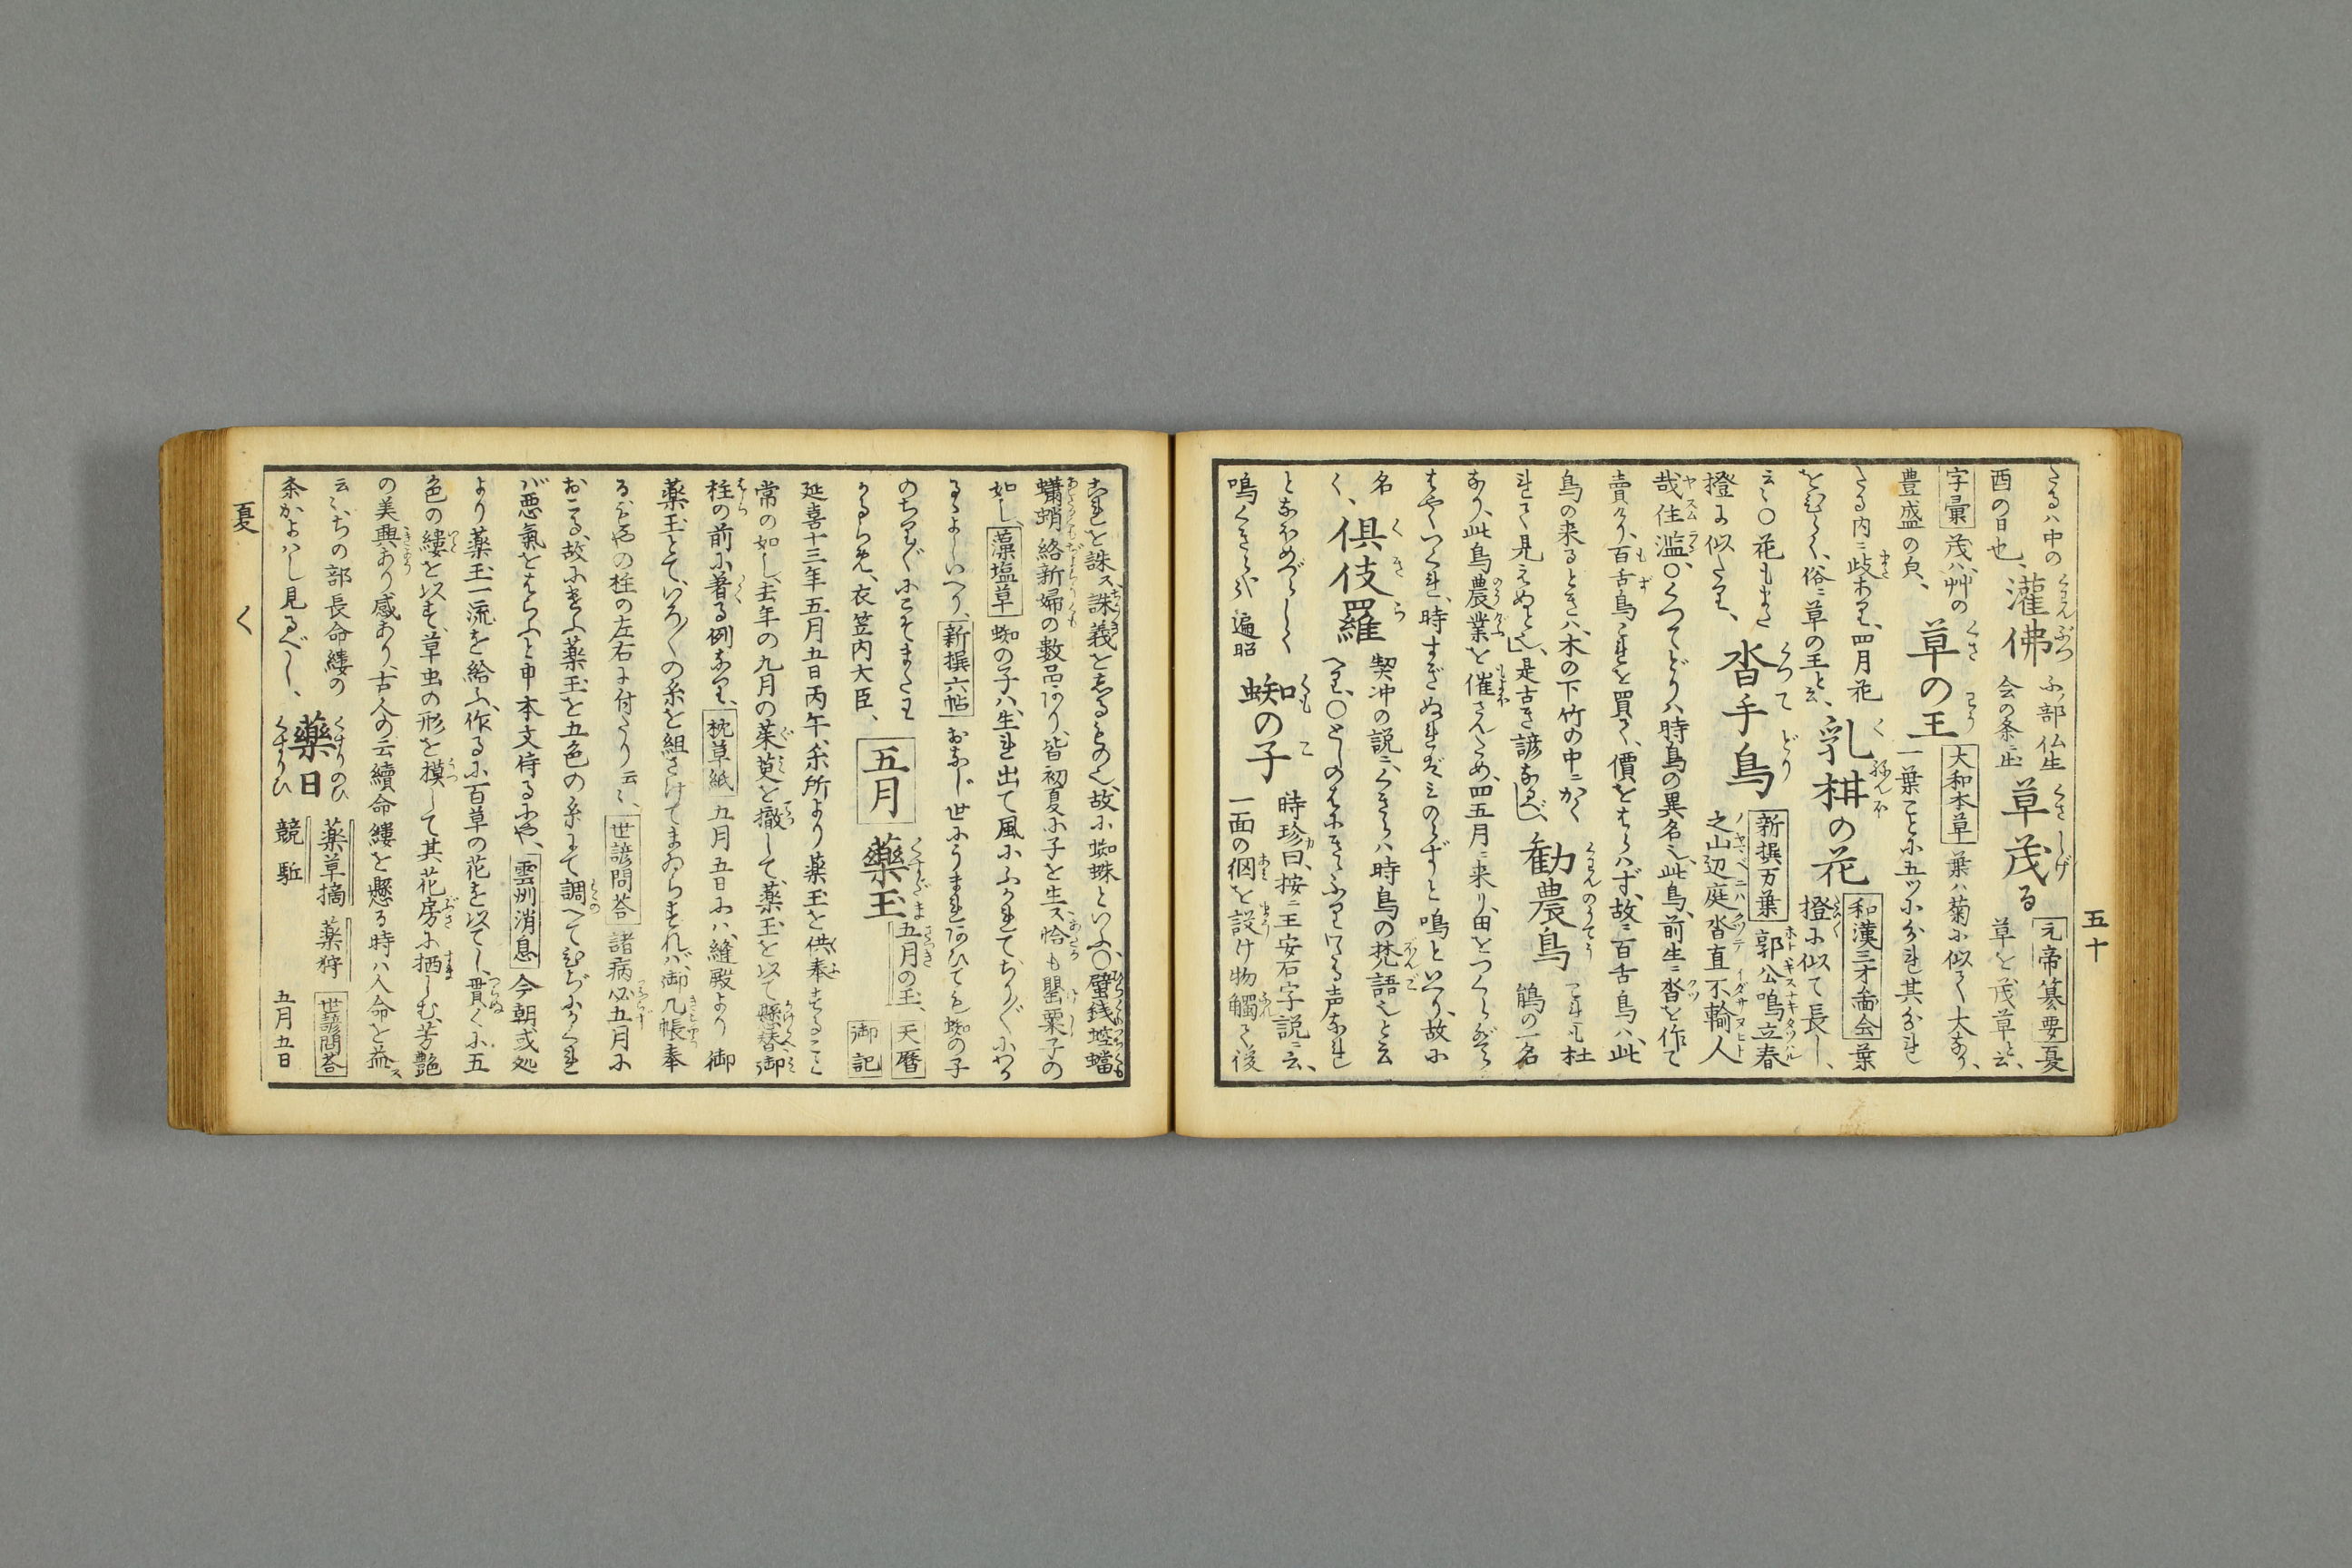 五十
たるハ中の
酉の日也、
灌佛
ふノ部仏生
会の条ニ出
草茂る
元帝纂要 夏
草を茂草と云、
字彙 茂ハ艸の
豊盛の皃、
草の王
大和本草 葉ハ菊に似て大なり、
一葉ことに五ツに分れ其分れ
たる内ニ歧あり、四月花
をひらく、俗ニ草の王と云、
乳柑の花
和漢三才圖会 葉
橙に似て長し、
云々〇花もまた
橙に似たり、
沓手鳥
新撰万葉 郭公鳴立春
之山辺庭沓直不輸人
哉住濫〇くつてどりハ時鳥の異名也、此鳥、前生ニ沓を作て
賣けり、百舌鳥これを買て、價をはらハず、故ニ百舌鳥ハ、此
鳥の来るときハ、木の下竹の中ニかく
れて見えぬと也、是古き諺なるべし、
勧農鳥
これも杜
鵑の一名
なり、此鳥農業を催さんため、四五月ニ来り、田をつくらバつくら
はやくつくれ、時すぎぬれバミのらずと鳴といへり、故に
名
く、
倶伎羅
契沖の説ニ、くきらハ時鳥の梵語也と云
へり、〇としのはにきゝふりにたる声なれ
となほめづらしく
鳴くきら哉 遍昭
蜘の子
時珍曰、按ニ王安石字説ニ云、
一面の網を設け物觸て後
これを誅ス、誅義をしるもの也、故に蜘蛛といふ、〇壁銭蛭蟷
蠨蛸絡新婦の數品あり、皆初夏に子を生ス、恰も罌粟子の
如し、藻塩草 蜘の子ハ、生れ出て風にふかれてちりぢりにわか
るゝよしいへり、新撰六帖 おなじ世にうまれあひても蜘の子
のちりぢりにこそまたわ
かるらめ、衣笠内大臣、
五月
藥玉
五月の玉、天暦
御記
延喜十三年五月五日丙午、糸所より薬玉を供奉すること
常の如し、去年の九月の茱萸を撤して、薬玉を以て懸替御
柱の前に著る例なり、枕草紙 五月五日にハ、縫殿より御
薬玉とて、いろ〱の糸を組さげてまゐらせたれバ、御几帳奉
るもやの柱の左右に付たり云々、世諺問答 諸病必五月に
おこる、故にけふ薬玉を五色の糸にて調へてひぢにかくれ
バ悪氣をはらふと申本文侍るにや、雲州消息 今朝或処
より薬玉一流を給ふ、作るに百草の花を以てし、貫くに五
色の縷を以す、草虫の形を摸して其花房に栖しむ、芳艶
の美興あり感あり、古人の云續命縷を懸る時ハ人命を益ス
云々、ちの部長命縷の
条かよハし見るべし、
藥日
くすりのひ
くすりひ
薬草摘 薬狩 世諺問答
競駈 五月五日
夏 く